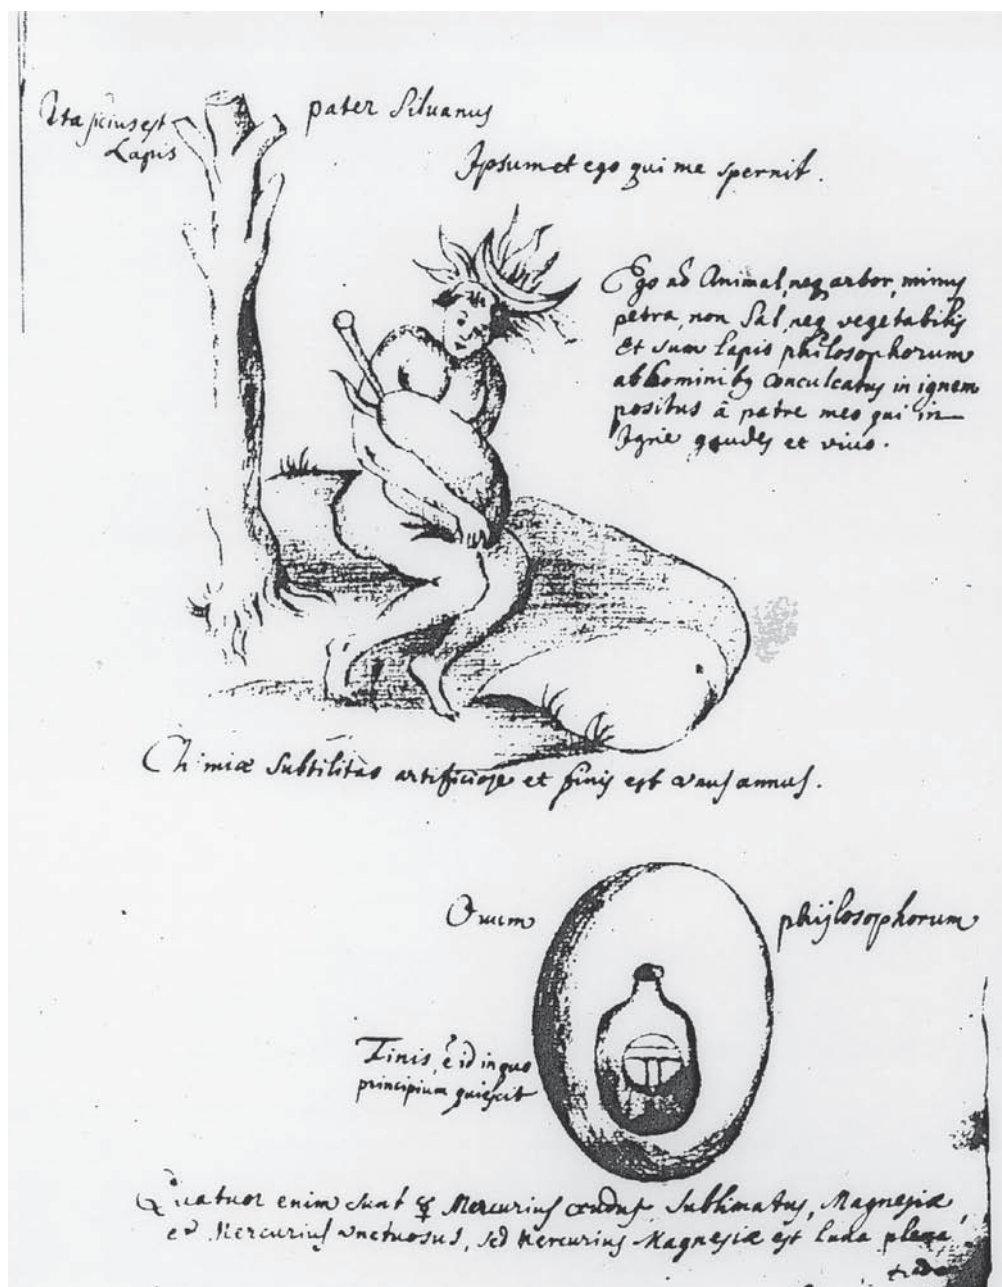 Ita siciusest
Lapis
pater Siluanus
Ipsum et ego qui me spernit.
Ego nō Animal, neq arbor, minus
petra, non Sal, neq vegetabilis
Et sum lapis philosophorum
ab hominibq conculcatus in ignem
positus á patre meo qui in
Igne gaudes et vivo.
Chimiæ Subtilitas artificiose et finis est annus.
Ouum
phijlosophorum
Finis, ē id in quo
principium quiescit
Quatuor enim sunt ☿ Mercurius crudus, Sublimatus, Magnesiæ,
et Mercurius unctuosus, sed Mercurius Magnesiæ est luna plena